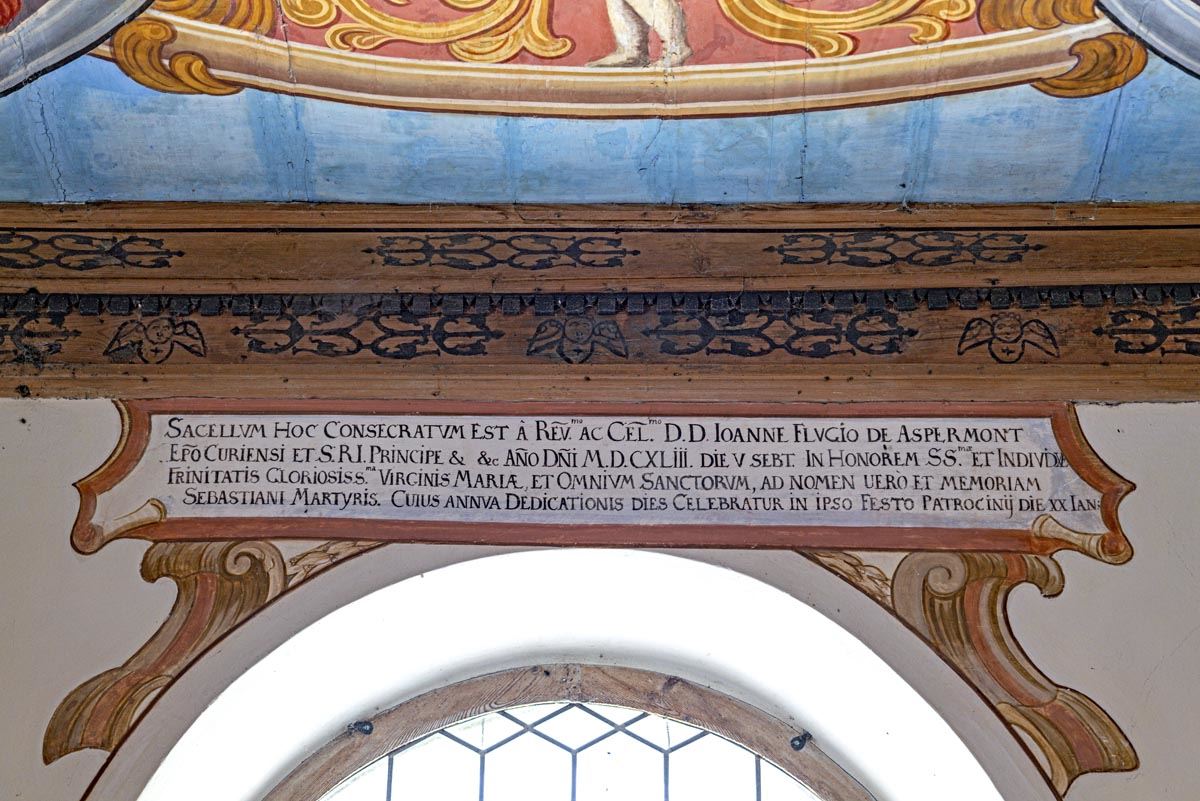 SACELLVM HOC CONSECRATVM EST À REṼ.mo AC CEL̃.mo D.D. IOANNE FLVGIO DE ASPERMONT
EPÕ CURIENSI ET S.R.I. PRINCIPE & &c AÑO DÑI M.D.CXLIII. DIE V SEBT. IN HONOREM SS.mæ ET INDIVIDUÆ
TRINITATIS GLORIOSISS.mæ VIRGINIS MARIÆ, ET OMNIVM SANCTORVM, AD NOMEN UERO ET MEMORIAM
SEBASTIANI MARTYRIS. CUIUS ANNVA DEDICATIONIS DIES CELEBRATUR IN IPSO FESTO PATROCINIJ DIE XX IAN: